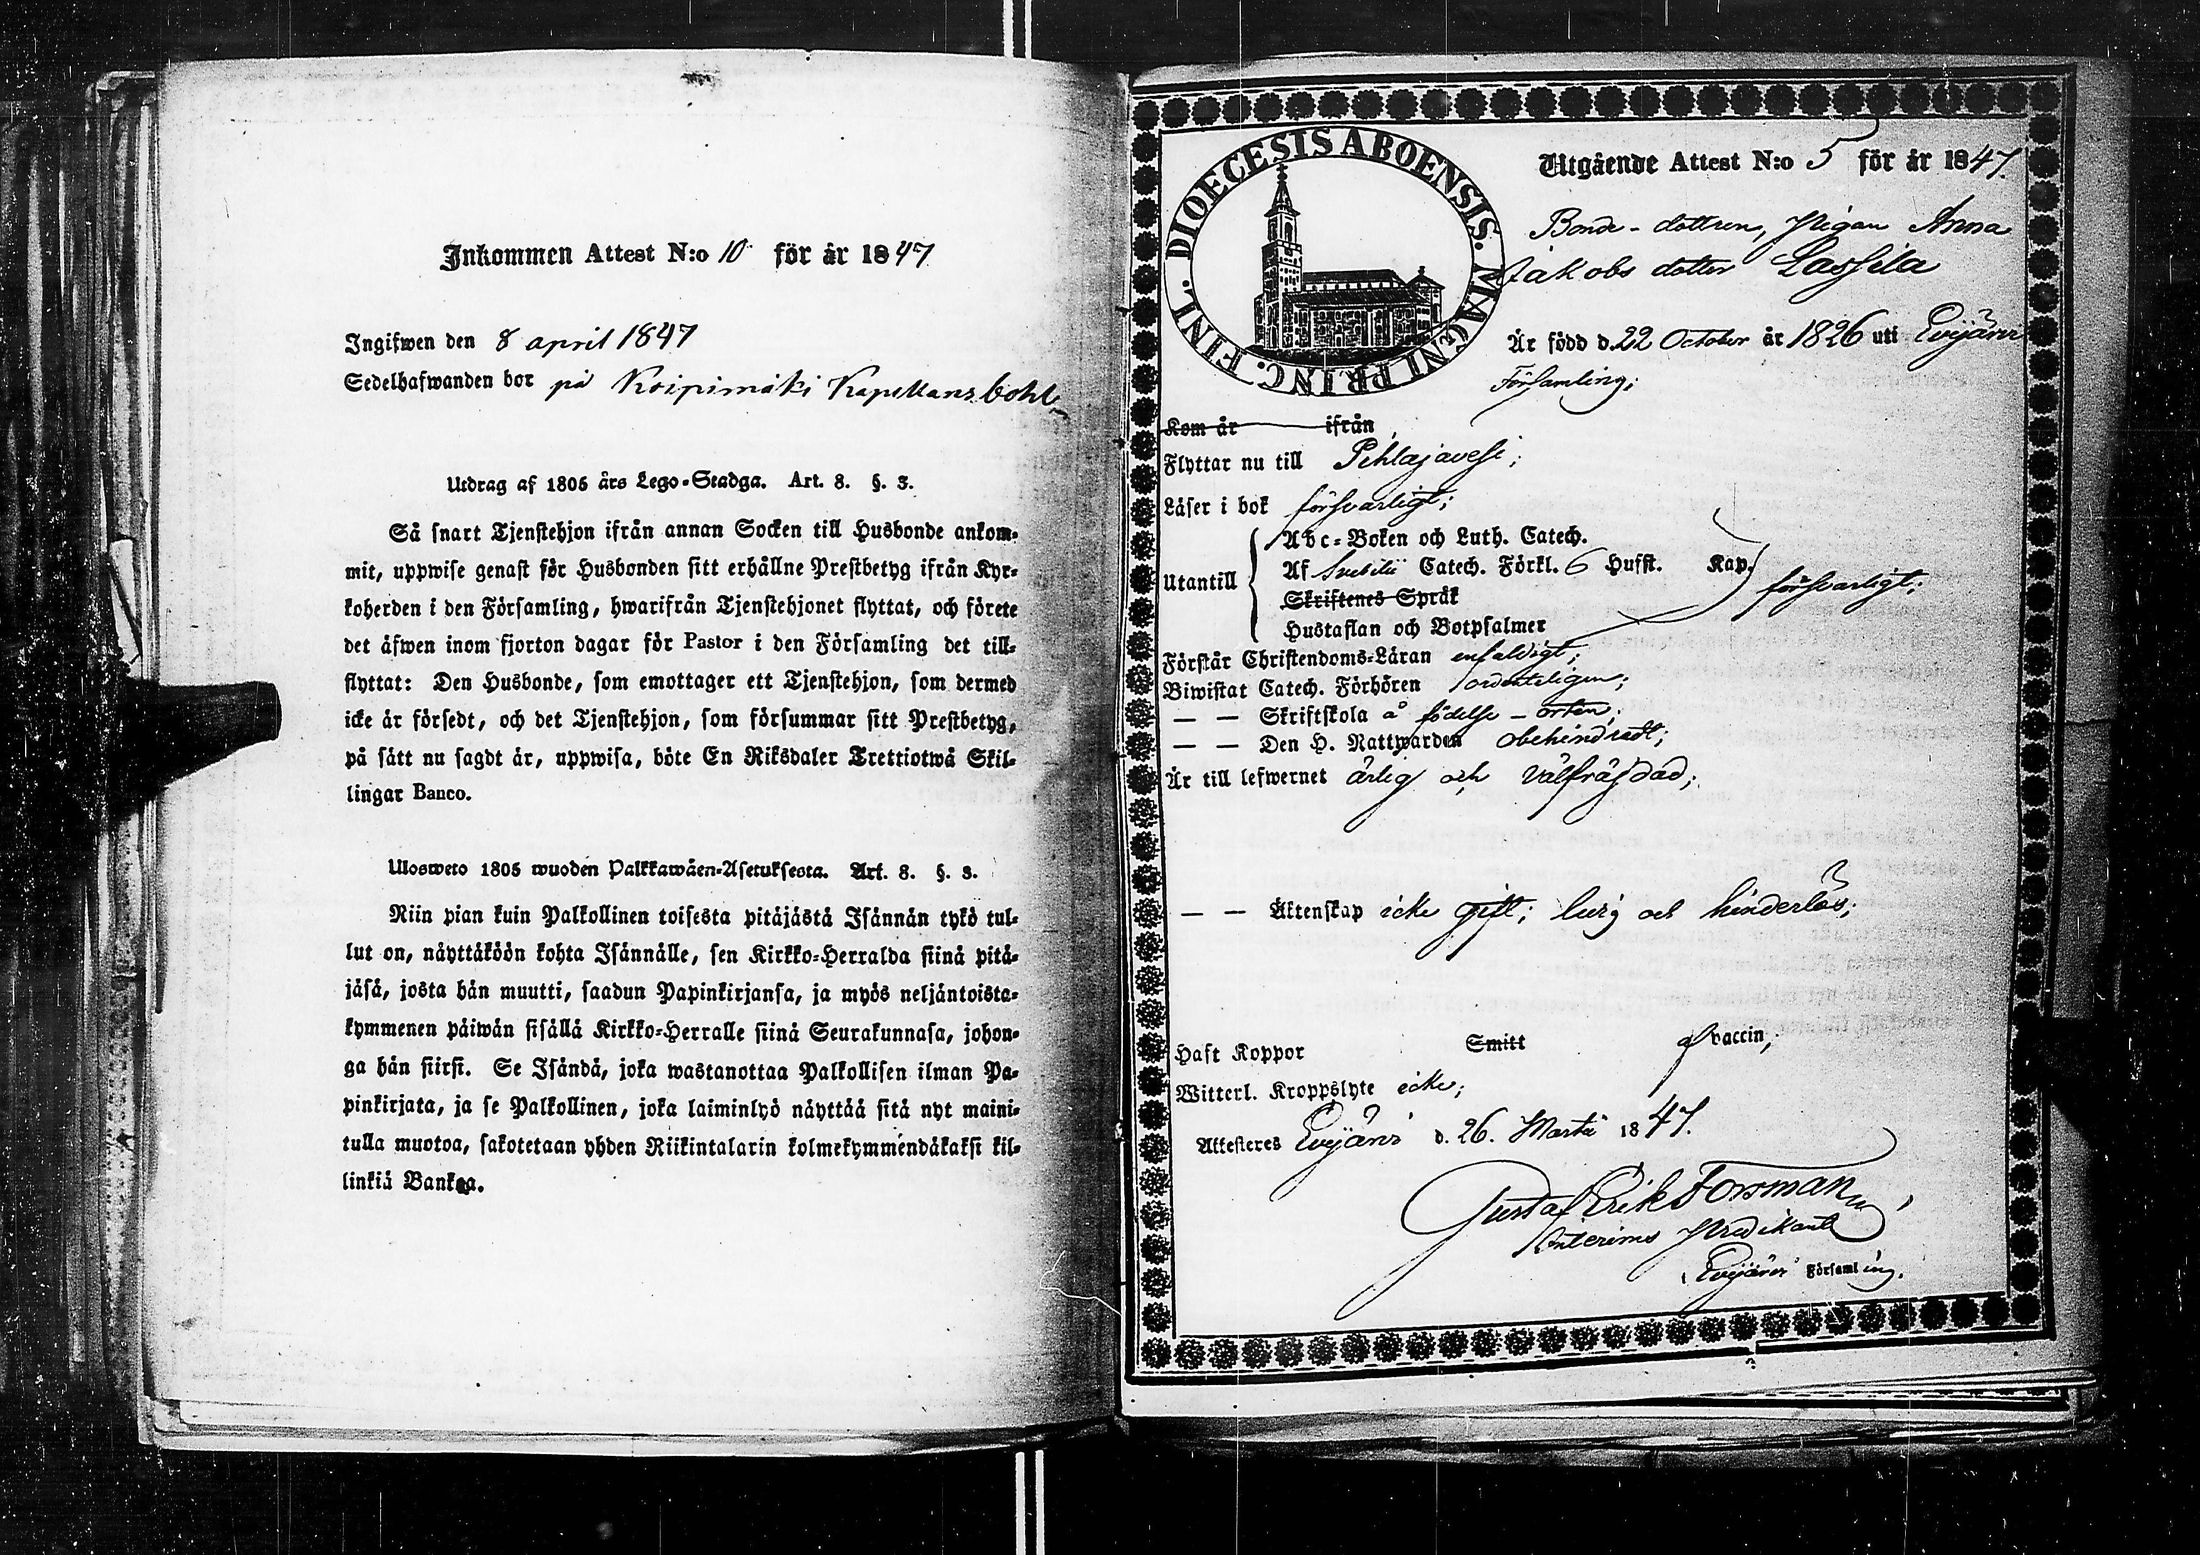 Inkommen Attest N:o 10 för år 1847
Ingifwen den 8 april 1847
Sedelhafwanden bor på Koipimäki Kapellans bohl
Utdrag af 1805 års Lego-Stadga. Art. 8. §. 3.
Så snart Tjenstehjon ifrån annan Socken till Husbonde ankom-
mit, uppwise genast för Husbonden sitt erhållne Prestbetyg ifrån Kyr-
koherden i den Församling, hwarifrån Tjenstehjonet flyttat, och förete
det äfwen inom fjorton dagar för Pastor i den Församling det till-
flyttat: Den Husbonde, som emottager ett Tjenstehjon, som dermed
icke är försedt, och det Tjenstehjon, som försummar sitt Prestbetyg,
på sätt nu sagdt är, uppwisa, böte En Riksdaler Trettiotwå Skil-
lingar Banco.
Ulosweto 1805 wuoden Palkkawäen-Asetuksesta. Art. 8. §. 3.
Niin pian kuin Palkollinen toisesta pitäjästä Isännän tykö tul-
lut on, näyttäköön kohta Isännälle, sen Kirkko-Herralda siinä pitä-
jäsä, josta hän muutti, saadun Papinkirjansa, ja myös neljäntoista-
kymmenen päiwän sisällä Kirkko-Herralle siinä Seurakunnasa, johon-
ga hän siirsi. Se Isändä, joka wastanottaa Palkollisen ilman Pa-
pinkirjata, ja se Palkollinen, joka laiminlyö näyttää sitä nyt maini-
tulla muotoa, sakotetaan yhden Riikintalarin kolmekymmendäkaksi kil-
linkiä Bankoa.
DIOECESIS ABOENSIS. MAGNI PRINC. FINL.
Utgående Attest N:o 5 för år 1847.
Bonde-dottren, Pigan Anna
Jakobs dotter Lassila
Är född d. 22 October år 1826 uti Evijärvi
Församling;
Kom år ifrån
Flyttar nu till Pihlajavesi;
Läser i bok försvarligt;
Utantill
Abc-Boken och Luth. Catech.
Af Svebilii Catech. Förkl. 6 Hufst. Kap.
försvarligt;
Skriftenes Språk
Hustaflan och Botpsalmer
Förstår Christendoms-Läran enfaldigt;
Biwistat Catech. Förhören ordenteligen;
— — Skriftskola å födelse-orten;
— — Den H. Nattwarden obehindradt;
Är till lefwernet ärlig och välfräjdad;
— — Äktenskap icke gift; ledig och hinderlös;
Haft Koppor Smitt vaccin;
Witterl. Kroppslyte icke;
Attesteres Evijärvi d. 26. Martii 1847.
Gustaf Erik Forsman
Interims Predikant
i Evijärvi Församling.